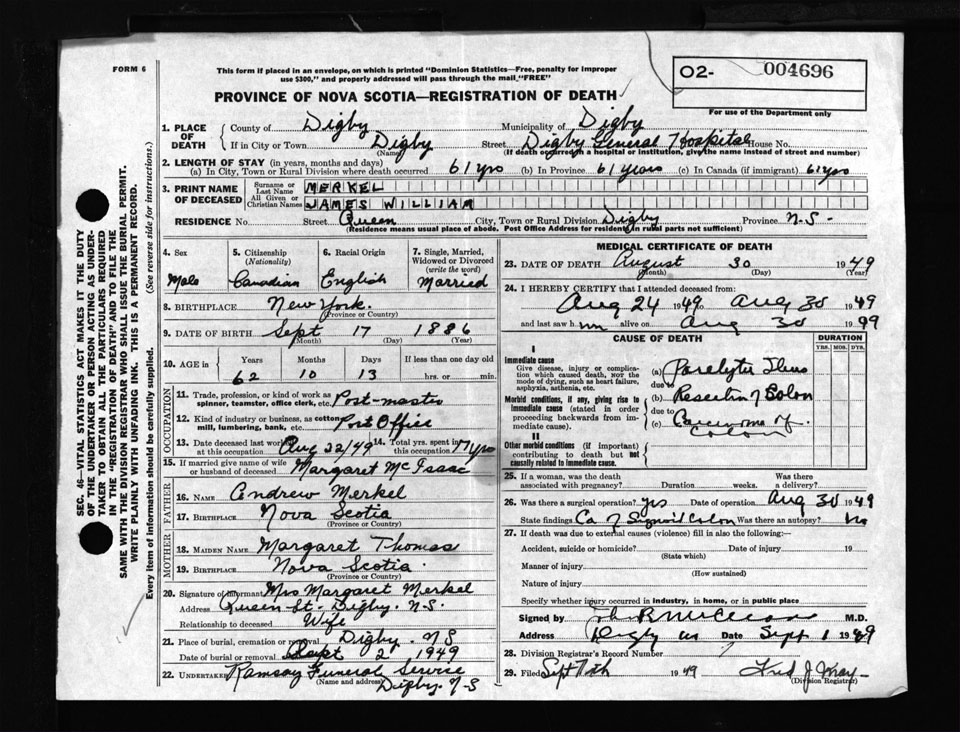 FORM 6
This form if placed in an envelope, on which is printed "Dominion Statistics—Free, penalty for improper
use $300," and properly addressed will pass through the mail "FREE"
O2- 004696
For use of the Department only
PROVINCE OF NOVA SCOTIA—REGISTRATION OF DEATH
SEC. 46—VITAL STATISTICS ACT MAKES IT THE DUTY
OF THE UNDERTAKER OR PERSON ACTING AS UNDER-
TAKER TO OBTAIN ALL THE PARTICULARS REQUIRED
IN THE "REGISTRATION OF DEATH" AND TO FILE THE
SAME WITH THE DIVISION REGISTRAR WHO SHALL ISSUE THE BURIAL PERMIT.
WRITE PLAINLY WITH UNFADING INK. THIS IS A PERMANENT RECORD.
Every item of information should be carefully supplied. (See reverse side for instructions.)
1. PLACE OF DEATH County of Digby Municipality of Digby
If in City or Town Digby Street Digby General Hospital House No.
(Name) (If death occurred in a hospital or institution, give the name instead of street and number)
2. LENGTH OF STAY (in years, months and days)
(a) In City, Town or Rural Division where death occurred 61 yrs (b) In Province 61 years (c) In Canada (if immigrant) 61 yrs
3. PRINT NAME OF DECEASED Surname or Last Name MERKEL
All Given or Christian Names JAMES WILLIAM
RESIDENCE No. Street Queen City, Town or Rural Division Digby Province N.S.
(Residence means usual place of abode. Post Office Address for residents in rural parts not sufficient)
4. Sex 5. Citizenship (Nationality) 6. Racial Origin 7. Single, Married, Widowed or Divorced (write the word)
Male Canadian English Married
8. BIRTHPLACE New York.
(Province or Country)
9. DATE OF BIRTH Sept 17 1886
(Month) (Day) (Year)
10. AGE in Years Months Days If less than one day old
62 10 13 hrs. or min.
OCCUPATION
11. Trade, profession, or kind of work as spinner, teamster, office clerk, etc. Post-master
12. Kind of industry or business, as cotton mill, lumbering, bank, etc. Post Office
13. Date deceased last worked at this occupation Aug 22/49 14. Total yrs. spent in this occupation 17 yrs
15. If married give name of wife or husband of deceased Margaret McIsaac
FATHER
16. NAME Andrew Merkel
17. BIRTHPLACE Nova Scotia
(Province or Country)
MOTHER
18. MAIDEN NAME Margaret Thomas
19. BIRTHPLACE Nova Scotia.
(Province or Country)
20. Signature of informant Mrs Margaret Merkel
Address Queen St. Digby. N.S.
Relationship to deceased Wife
21. Place of burial, cremation or removal Digby. NS
Date of burial or removal Sept 2 1949
22. UNDERTAKER Ramsay Funeral Service
(Name and address) Digby. N.S
MEDICAL CERTIFICATE OF DEATH
23. DATE OF DEATH August 30 1949
(Month) (Day) (Year)
24. I HEREBY CERTIFY that I attended deceased from:
Aug 24 1949 to Aug 30 1949
and last saw h im alive on Aug 30 1949
CAUSE OF DEATH DURATION
YRS. MOS. DYS.
I
Immediate cause
Give disease, injury or complication which caused death, NOT the mode of dying, such as heart failure, asphyxia, asthenia, etc.
(a) Paralytic Ileus
due to
Morbid conditions, if any, giving rise to immediate cause (stated in order proceeding backwards from immediate cause).
(b) Resection of Colon
due to
(c) Carcinoma of Colon
II
Other morbid conditions (if important) contributing to death but not causally related to immediate cause.
25. If a woman, was the death associated with pregnancy? Duration weeks. Was there a delivery?
26. Was there a surgical operation? yes Date of operation Aug 30 1949
State findings Ca of Sigmoid Colon Was there an autopsy? No
27. If death was due to external causes (violence) fill in also the following:—
Accident, suicide or homicide? Date of injury 19
(State which)
Manner of injury
(How sustained)
Nature of injury
Specify whether injury occurred in industry, in home, or in public place
Signed by M.D.
Address Digby NS Date Sept 1 1949
28. Division Registrar's Record Number
29. Filed Sept 7th 1949 Fred J.
(Division Registrar)